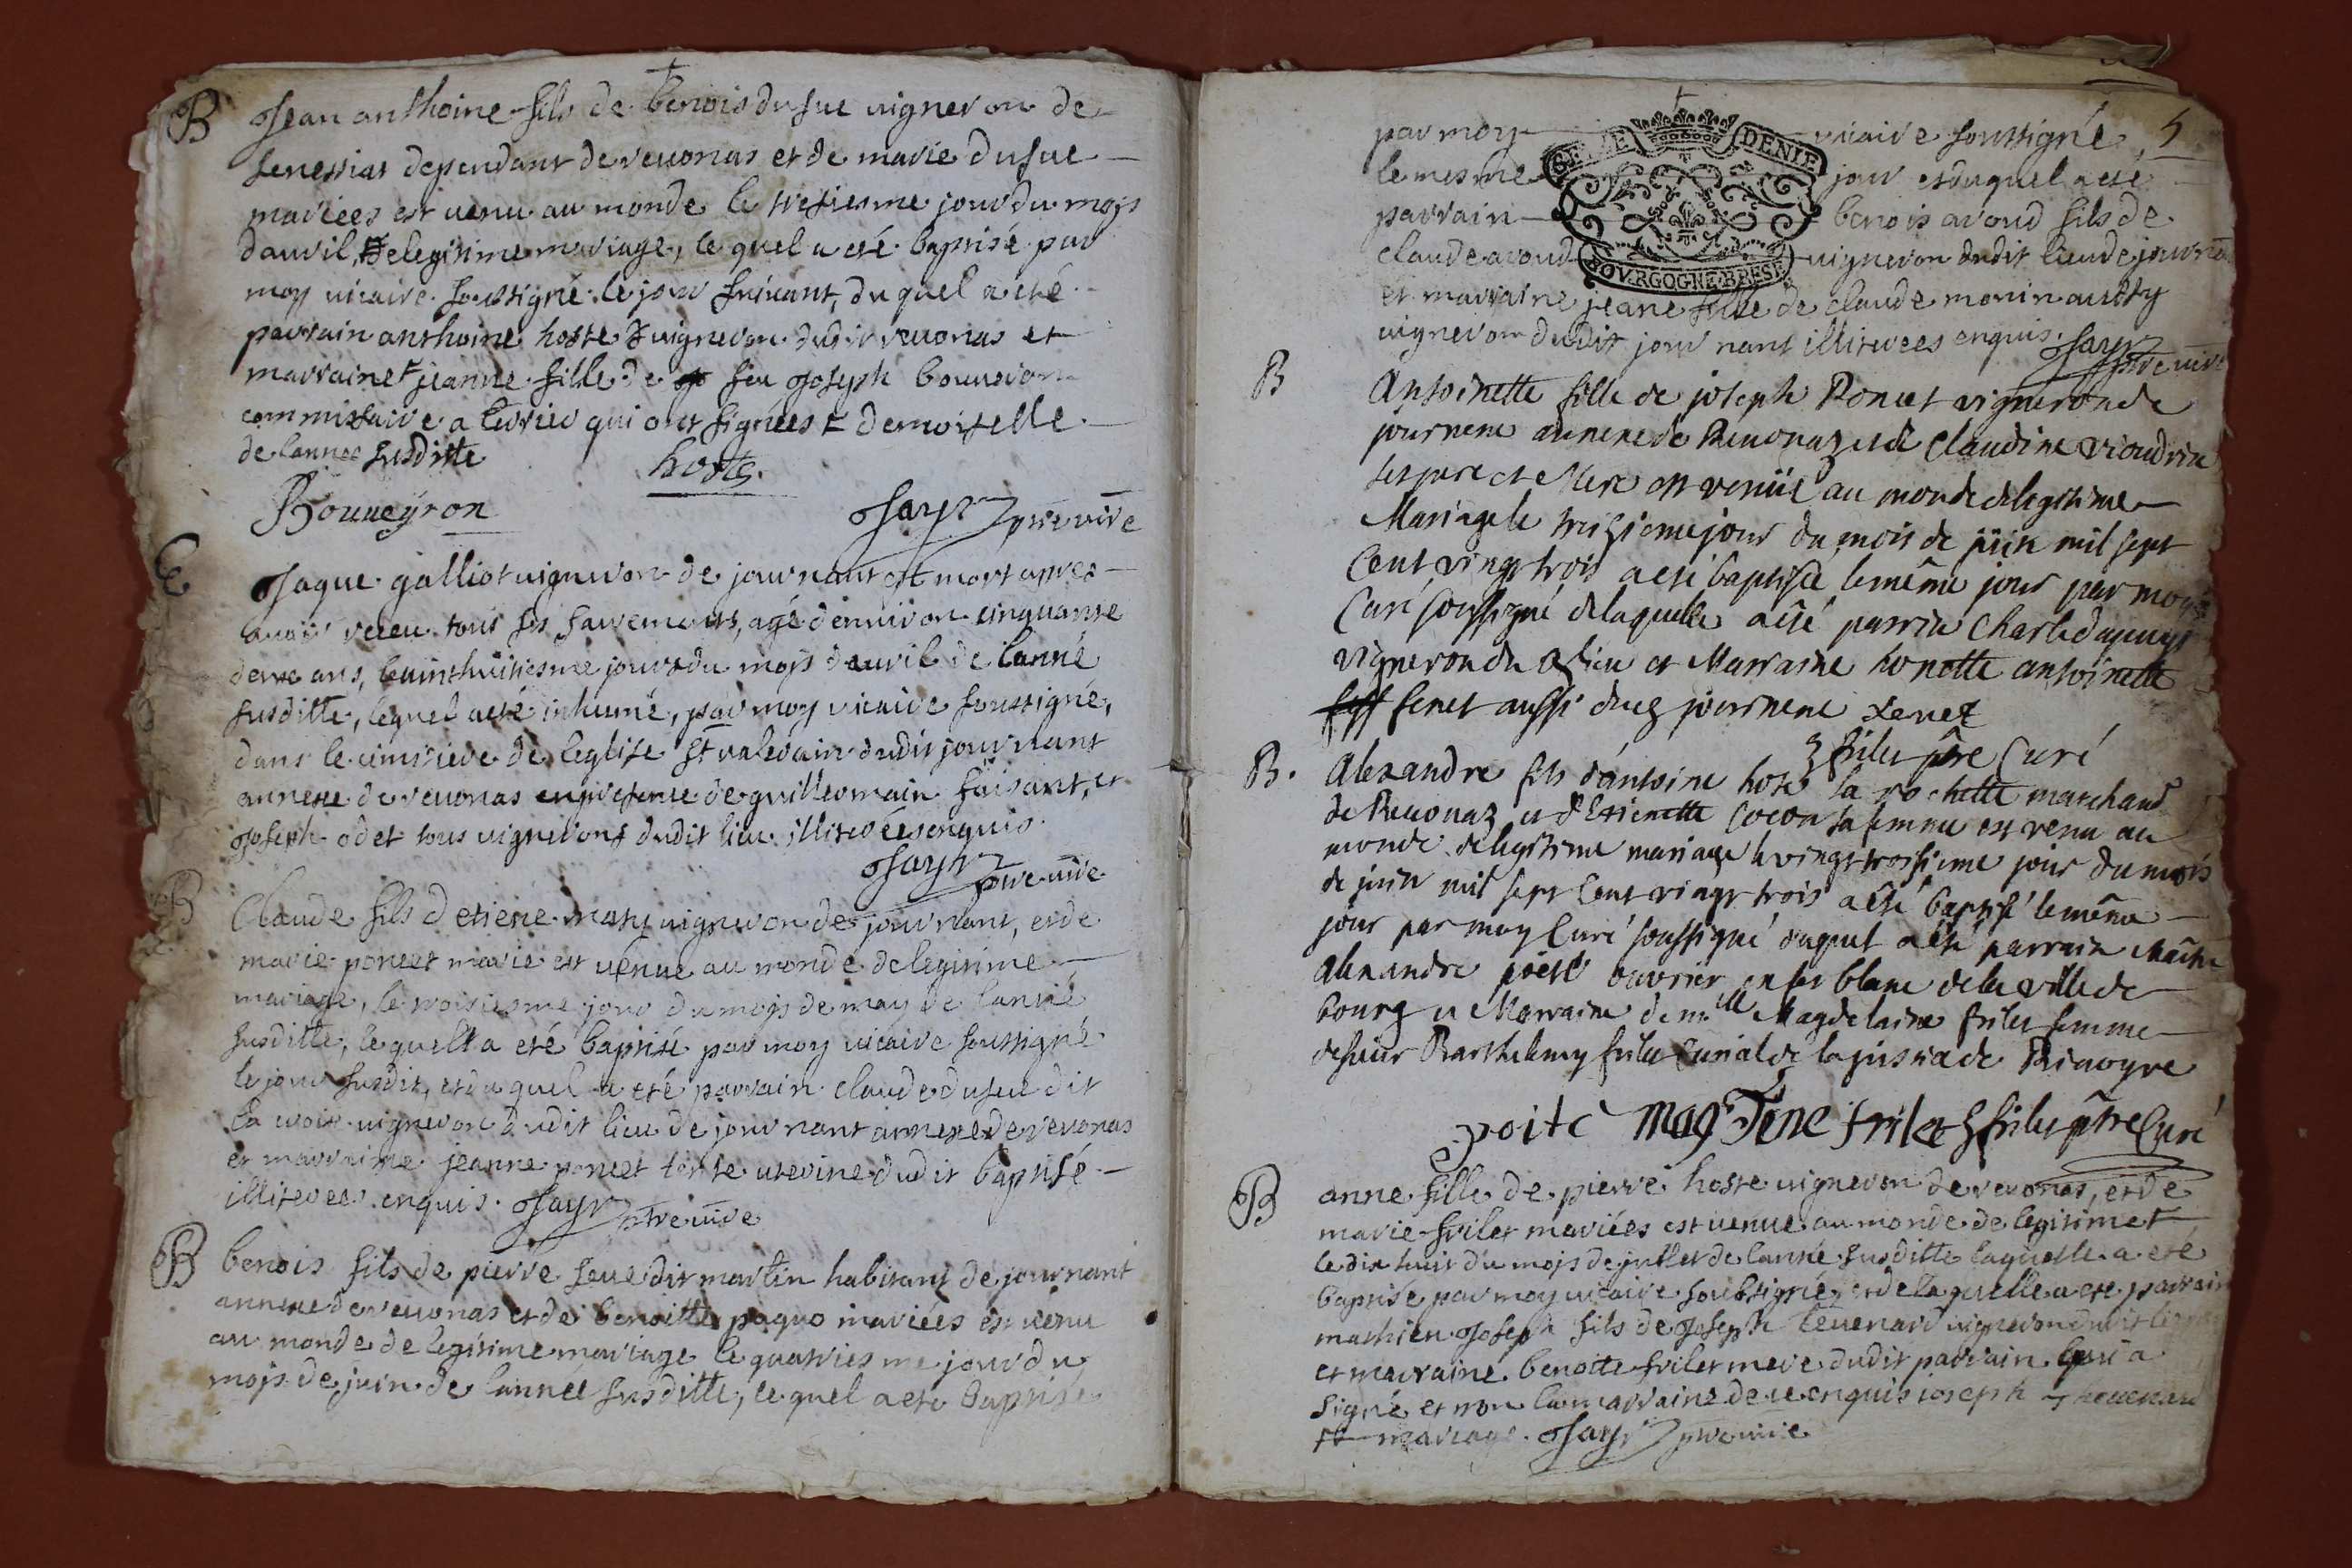 B Jean anthoine fils de benois dufue vigneron de
senessias dependant de revonas et de marie dufue
mariees est venu au monde le tresiesme jour du mojs
dauril, de legitime mariage, le quel a eté baptisé par
moy vicaire soussigné le jour suivant, du quel a eté
parrain anthoine hoste vigneron dudit revonas et
marraine jeanne fille de feu Joseph bouueiron
commissaire a qui ont signées demoiselle
de lannee susditte
hoste
Bouueyron
Jayr ptre vire
Jaque galliot vigneron de journant est mort apres
avoir receu tous ses sacremens, agé denuiron cinquante
deux ans, le vinthuitiesme jour du mojs dauril de lanné
susditte, lequel a eté inhumé, par moy vicaire soussigné,
dans le cimetiere de leglise St valerain dudit journant
annexe de revonas en presence de guilleomain faisant, et
Joseph odet tous vignerons dudit lieu illiterées enquis
Jayr ptre vire
B Claude fils detiene maty vigneron de journant, et de
marie poncet marié est venue au monde de legitime
mariage, le troisiesme jour du mojs de may de lanné
susditte, le quell a eté baptisé par moy vicaire soussigné
le jour susdit, et du quel a eté parrain claude dufue dit
la croix vigneron dudit lieu de journant annexe de revonas
et marraine jeanne poncet tante uterine dudit baptisé
illiterees enquis. Jayr ptre vire
B benois fils de pierre seue dit martin habitant de journant
annexe de revonas et de benoitte paquo mariées est venu
au monde de legitime mariage le quatriesme jour du
mojs de juin de lanneé susditte, le quel a eté baptisé
par moy vicaire soussigné 5
GENE DENIE
le mesme jour et duquel a eté
parrain benois avoud fils de
claude avoud vigneron dudit lieu de journant
BOVRGOGNE BRESE
et marraine jeane fille de claude monin aussy
vigneron dudit jour nant illiterees enquis. Jayr
ptre vire
B Antoinette fille de joseph Poncet vigneron de
journene annexe de Reuonaz et de Claudine vioudrin
ses pere et Mere est venüe au monde de legitime
Mariage le treiziemejour du mois de juin mil sept
Cent vingt trois a eté baptisée le même jour par moy
Curé soussigné de laquelle a été parrin Charle
vigneron du lieu et Marraine honette antoinette
fenet aussi dud journene Fenet
frilet ptre Curé
B. Alexandre fils d'antoine hote la rochette marchand
de Reuonaz et d'Etienette Cocon sa femme est venu au
monde de legitime mariage le vingt troisieme jour du mois
de juin mil sept Cent vingt trois a été baptisé le même
jour par moy Curé soussigné duquel a été parrain Maitre
Alexandre poité ouvrier en fer blanc de la ville de
bourg et Marraine demlle Magdelaine frilet femme
de sieur Barthelemy frilet Curial de la justice de Rivoyre
poite magdlene frilet frilet ptre Curé
B anne fille de pierre hoste vigneron de revonas, et de
marie frilet mariées est venue au monde de legitime
le dix huit du mojs de juillet de lanné susditte laquelle a eté
baptisée par moy vicaire soubsigné, et de laquelle a ete parrain
mathieu Joseph fils de Joseph teuenard vigneron dudit lieu
et marraine benoite frilet mere dudit parrain qui a
signé et non la marraine de ce enquis ioseph theuenard
mariage. Jayr ptre vire